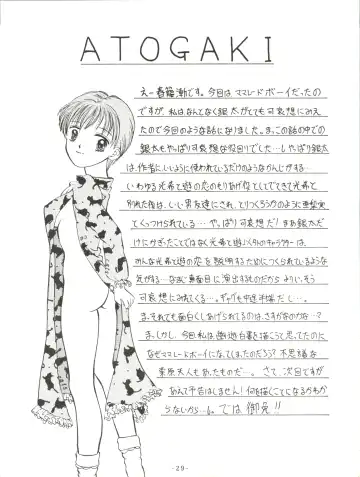 ATOGAKI
えー春篠漸です。今回はママレードボーイだったの
ですが、私はなんとなく銀太がとても可哀想にみえ
たので今回のような話になりました。ま、この話の中での
銀太もやっぱり可哀想な役回りでした…しゃぱり銀太
は作者にいいように使われているだけのようなかんじがする…
いわゆる光希と遊の恋のもりあげ役としてでてきて光希と
別れた後は、いい男を達にされ、とりつくろうかのように亜梨実
とくっつけられている…やっぱり可哀想だ!まあ銀太だ
けにかぎったことではなく光希と遊以外のキャラクターは、
みんな光希と遊の恋を説明するためにつくられているような
気がする…なまじ真面目に演出するものだからよけいそう
可哀想にみえてくる…。ギャグも中途半端だし…。
ま、それでも面白くしあげられてるのは、さすがなのかな…?
ま、しかし、今回私は幽遊白書を描こうて思ってたのに
なぜママレードボーイになってしまったのだろう?不思議な
桑原夫人もあったものだ…。さて、次回ですが
あえて予告はしません!何を描くことになるかわか
らないから…。では御免!!
-29-